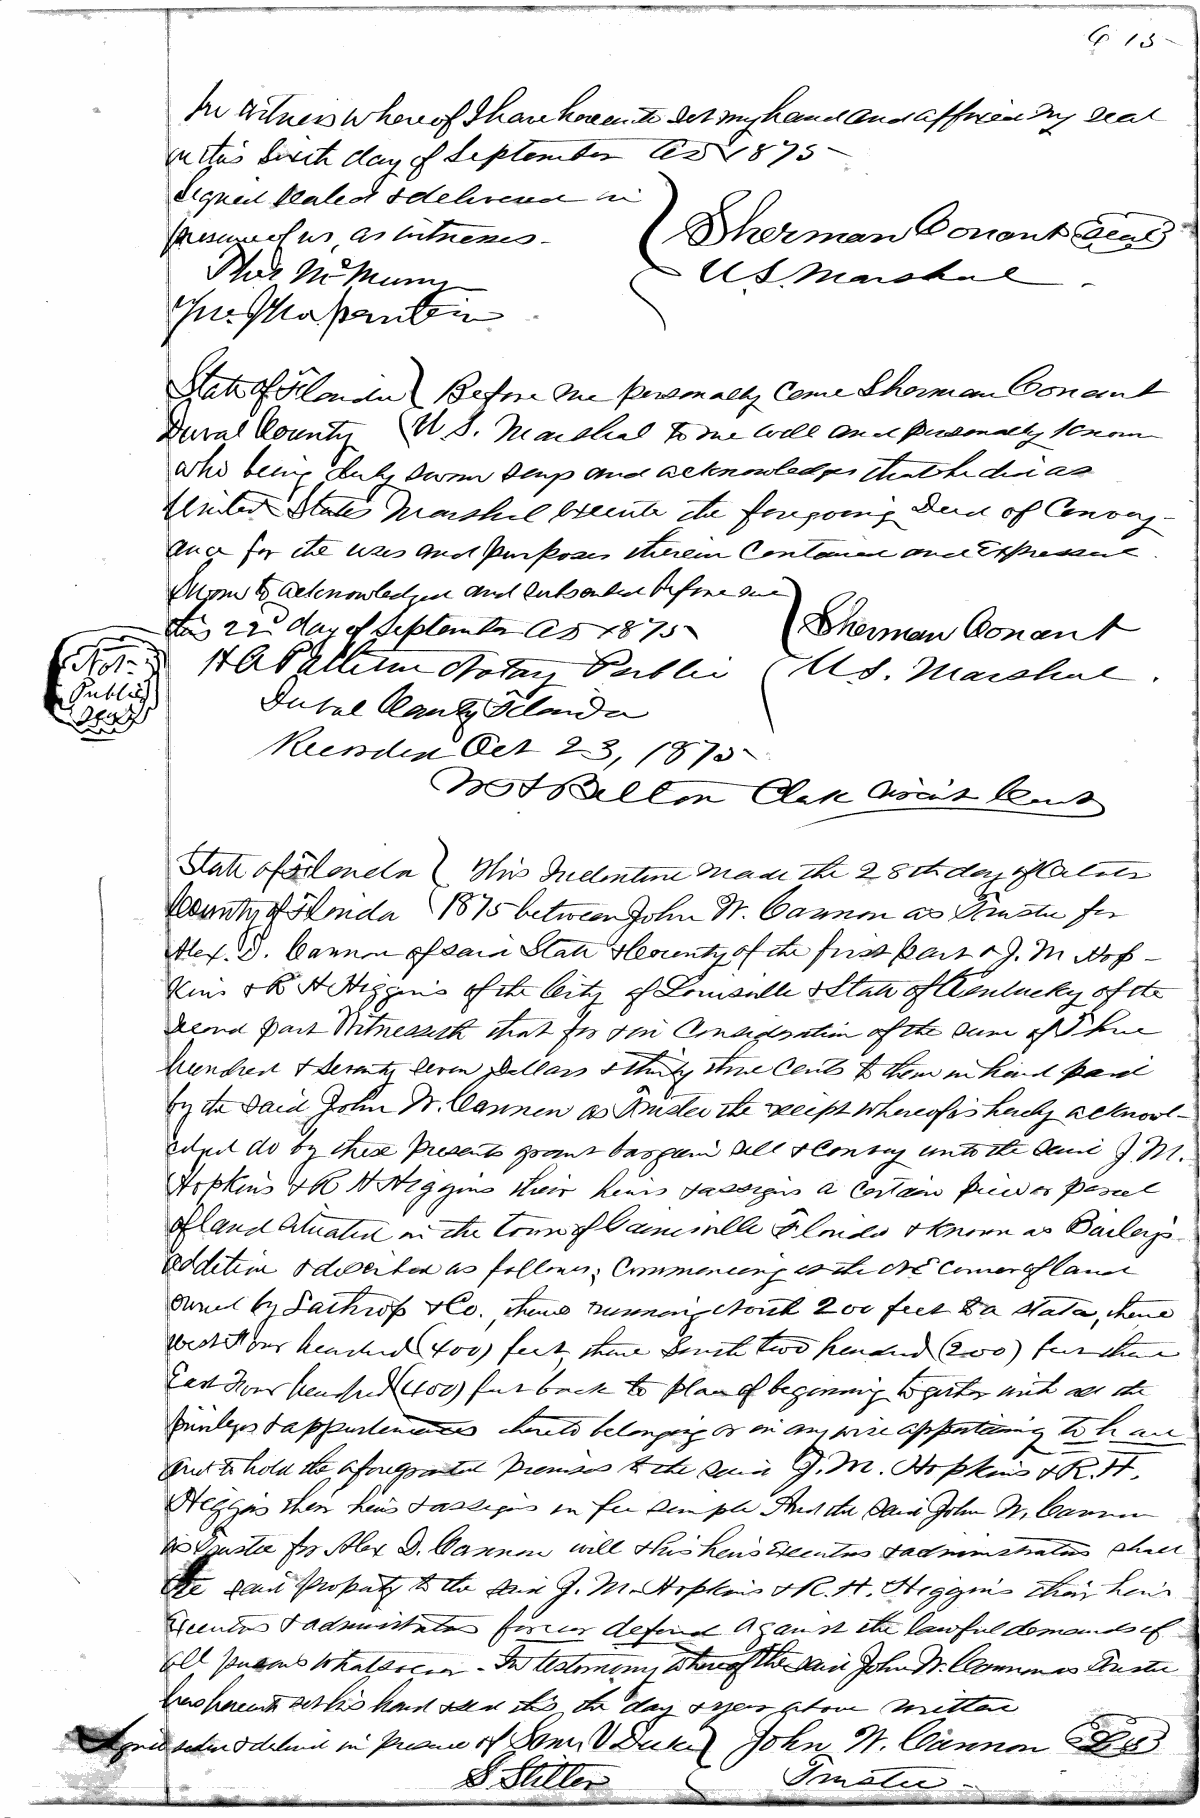 615
In witness whereof I have hereunto set my hand and affixed my seal
on this Sixth day of September AD 1875
Signed sealed & delivered in
presence of us, as witnesses.
Sherman Conant (Seal)
U.S. Marshal.
Thos McMurry
State of Florida } Before me personally Came Sherman Conant
Duval County } U.S. Marshal to me well and personally Known
who being duly sworn says and acknowledges that he did as
United States Marshal execute the foregoing Deed of Convey-
ance for the uses and purposes therein Contained and Expressed.
Sworn to acknowledged and subscribed before me
this 22d day of September AD 1875
Sherman Conant
U.S. Marshal.
Not-
Public
Seal
Notary Public
Duval County Florida
Recorded Oct 23, 1875
Belton Clerk Circuit Court
State of Florida } This Indenture made the 28th day of October
County of Florida } 1875 between John W. Cannon as Trustee for
Alex. D. Cannon of said State & County of the first part & J. M. Hop-
kins & R H Higgins of the City of Louisville & State of Kentucky of the
second part Witnesseth that for & in Consideration of the sum of Three
hundred & seventy seven Dollars & thirty three Cents to them in hand paid
by the said John W. Cannon as Trustee the receipt whereof is hereby acknowl-
edged do by these Presents grant bargain sell & Convey unto the said J. M.
Hopkins & R H Higgins their heirs & assigns a certain piece or parcel
of land situated in the town of Gainesville Florida & known as Bailey's
addition & described as follows; Commencing at the NE Corner of land
owned by Lathrop & Co., thence running North 200 feet to a stake, thence
west Four hundred (400) feet, thence South two hundred (200) feet thence
East Four hundred (400) feet back to place of beginning together with all the
privileges & appurtenances thereto belonging or in any wise appertaining to have
and to hold the aforegranted Premises to the said J. M. Hopkins & R. H.
Higgins their heirs & assigns in fee simple And the said John W. Cannon
as Trustee for Alex D. Cannon will & his heirs Executors & administrators shall
the said property to the said J. M. Hopkins & R. H. Higgins their heirs
Executors & administrators forever defend against the lawful demands of
all persons whatsoever. In testimony whereof the said John W. Cannon as Trustee
has hereunto set his hand & seal this the day & year above written
Signed sealed & delivered in presence of Saml V Duke } John W. Cannon (LS)
S. Stiller } Trustee